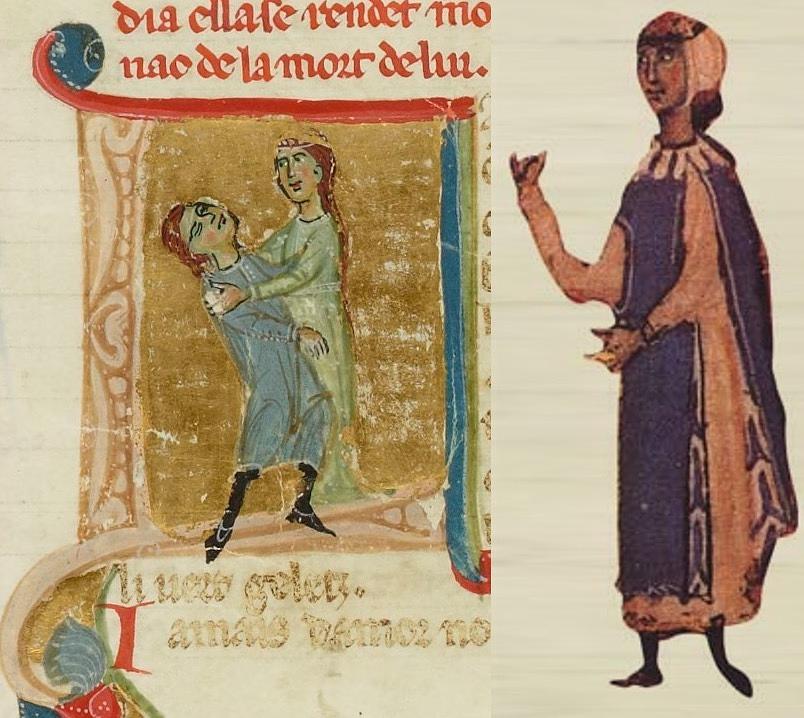 dia ella se rendet mo
nac de la mort de lui.
li uers geletz.
Iamais damor no